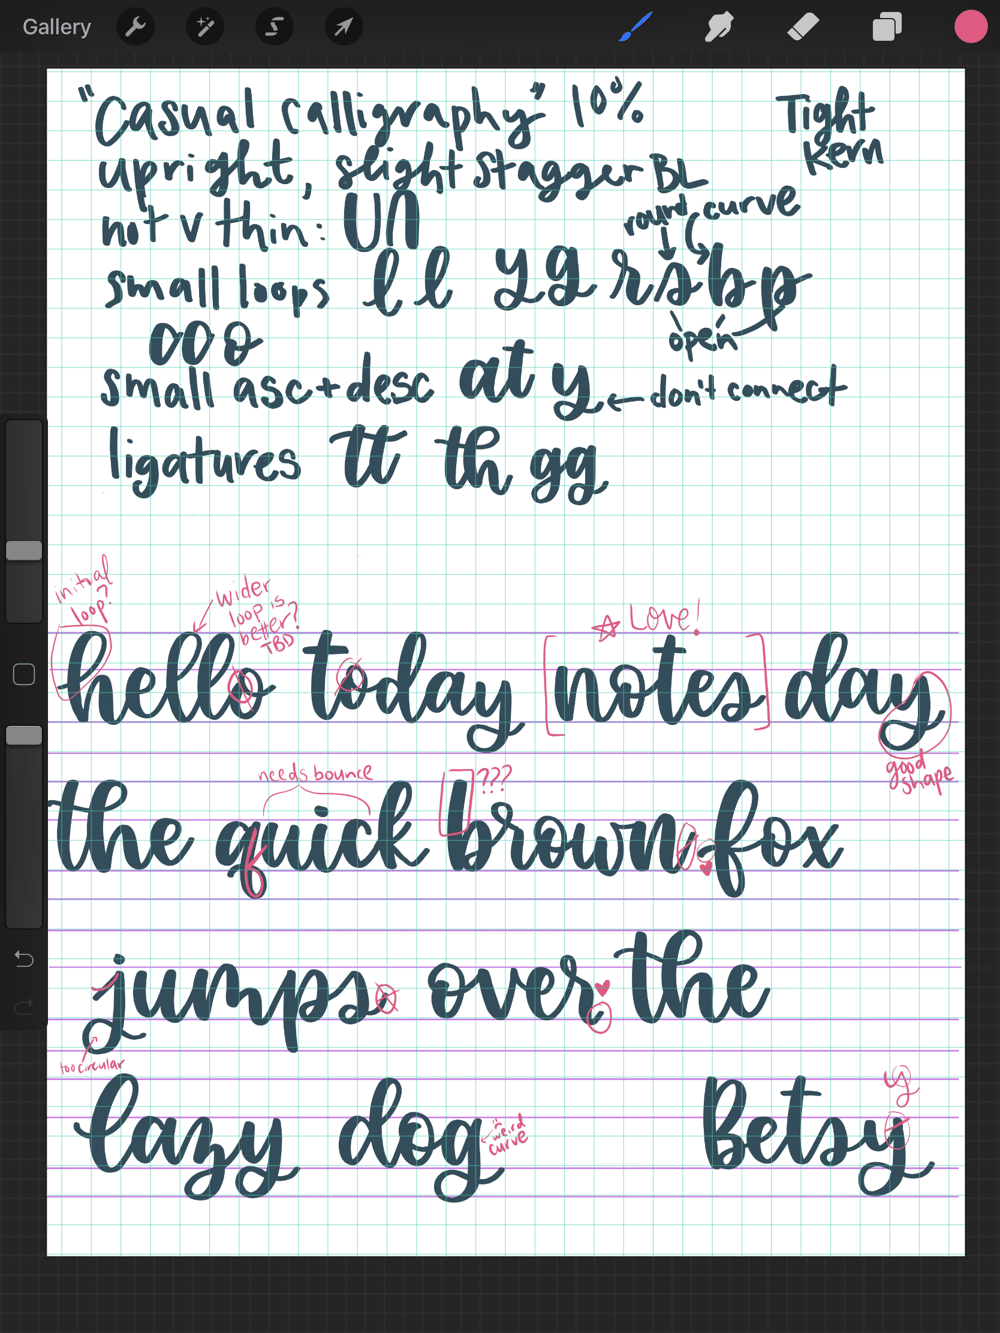 Gallery
"Casual calligraphy" 10%
Tight
Kern
upright, slight stagger BL
not v thin: UN
round curve
small loops l l y g r s b p
open
o o o
small asc + desc at y ← don't connect
ligatures tt th gg
initial
loop?
wider
loop is
better?
TBD
☆ Love!
hello today [notes] day
good
shape
needs bounce
???
the quick brown fox
jumps over the
too circular
y
lazy dog Betsy
weird
curve